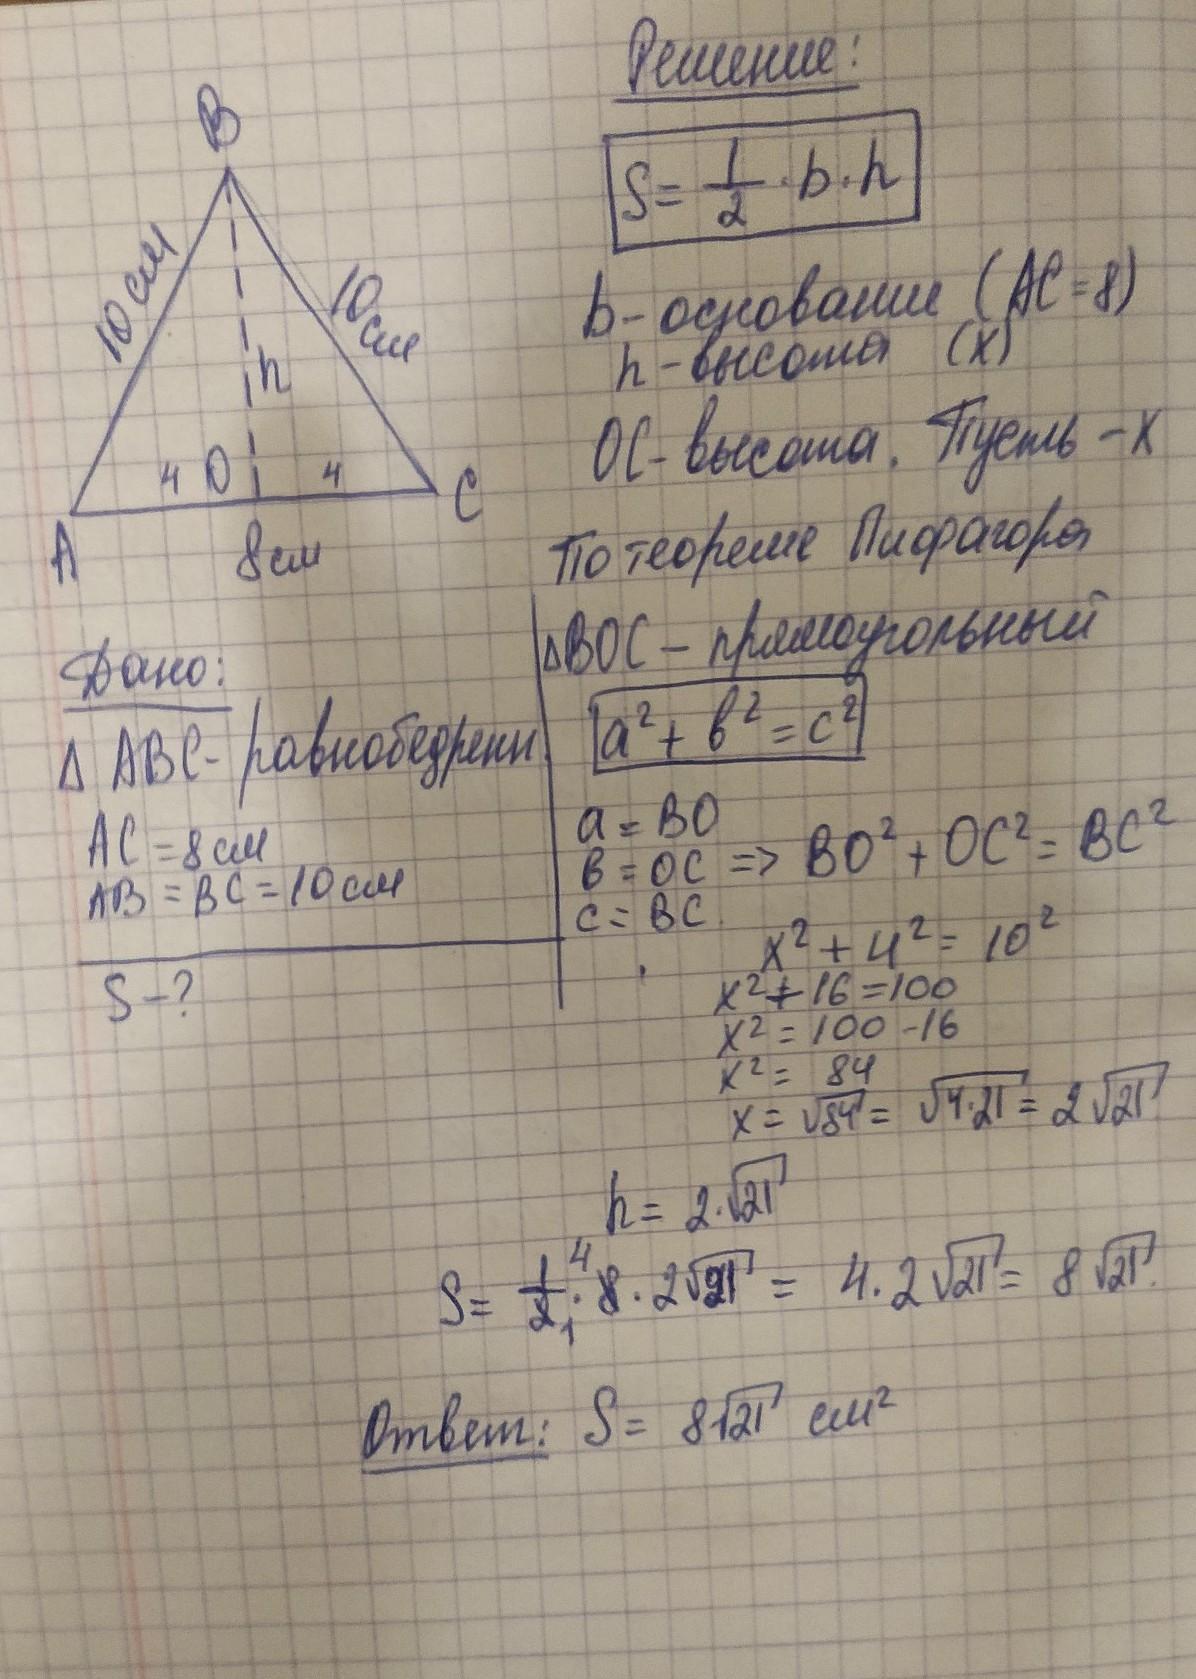 B
10 см
10 см
h
4 O 4
A C
8 см
Дано:
Δ ABC - равнобедренн.
AC = 8 см
AB = BC = 10 см
S - ?
Решение:
S = 1/2 · b · h
b - основание (AC = 8)
h - высота (x)
OC - высота. Пусть - x
По теореме Пифагора
ΔBOC - прямоугольный
a² + в² = c²
a = BO
в = OC => BO² + OC² = BC²
c = BC.
x² + 4² = 10²
x² + 16 = 100
x² = 100 - 16
x² = 84
x = √84 = √4·21 = 2√21
h = 2·√21
S = 1/2 · 8 · 2√21 = 4 · 2√21 = 8√21.
Ответ: S = 8√21 см²